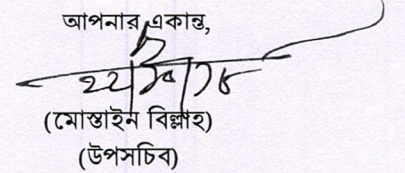 আপনার একান্ত,
(মোস্তাইন বিল্লাহ)
(উপসচিব)